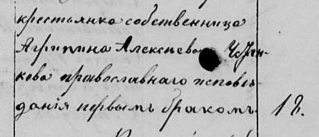 крестьянка собственница
Агрипина Алексѣева
кова православнаго исповѣ-
данія первымъ бракомъ 18.